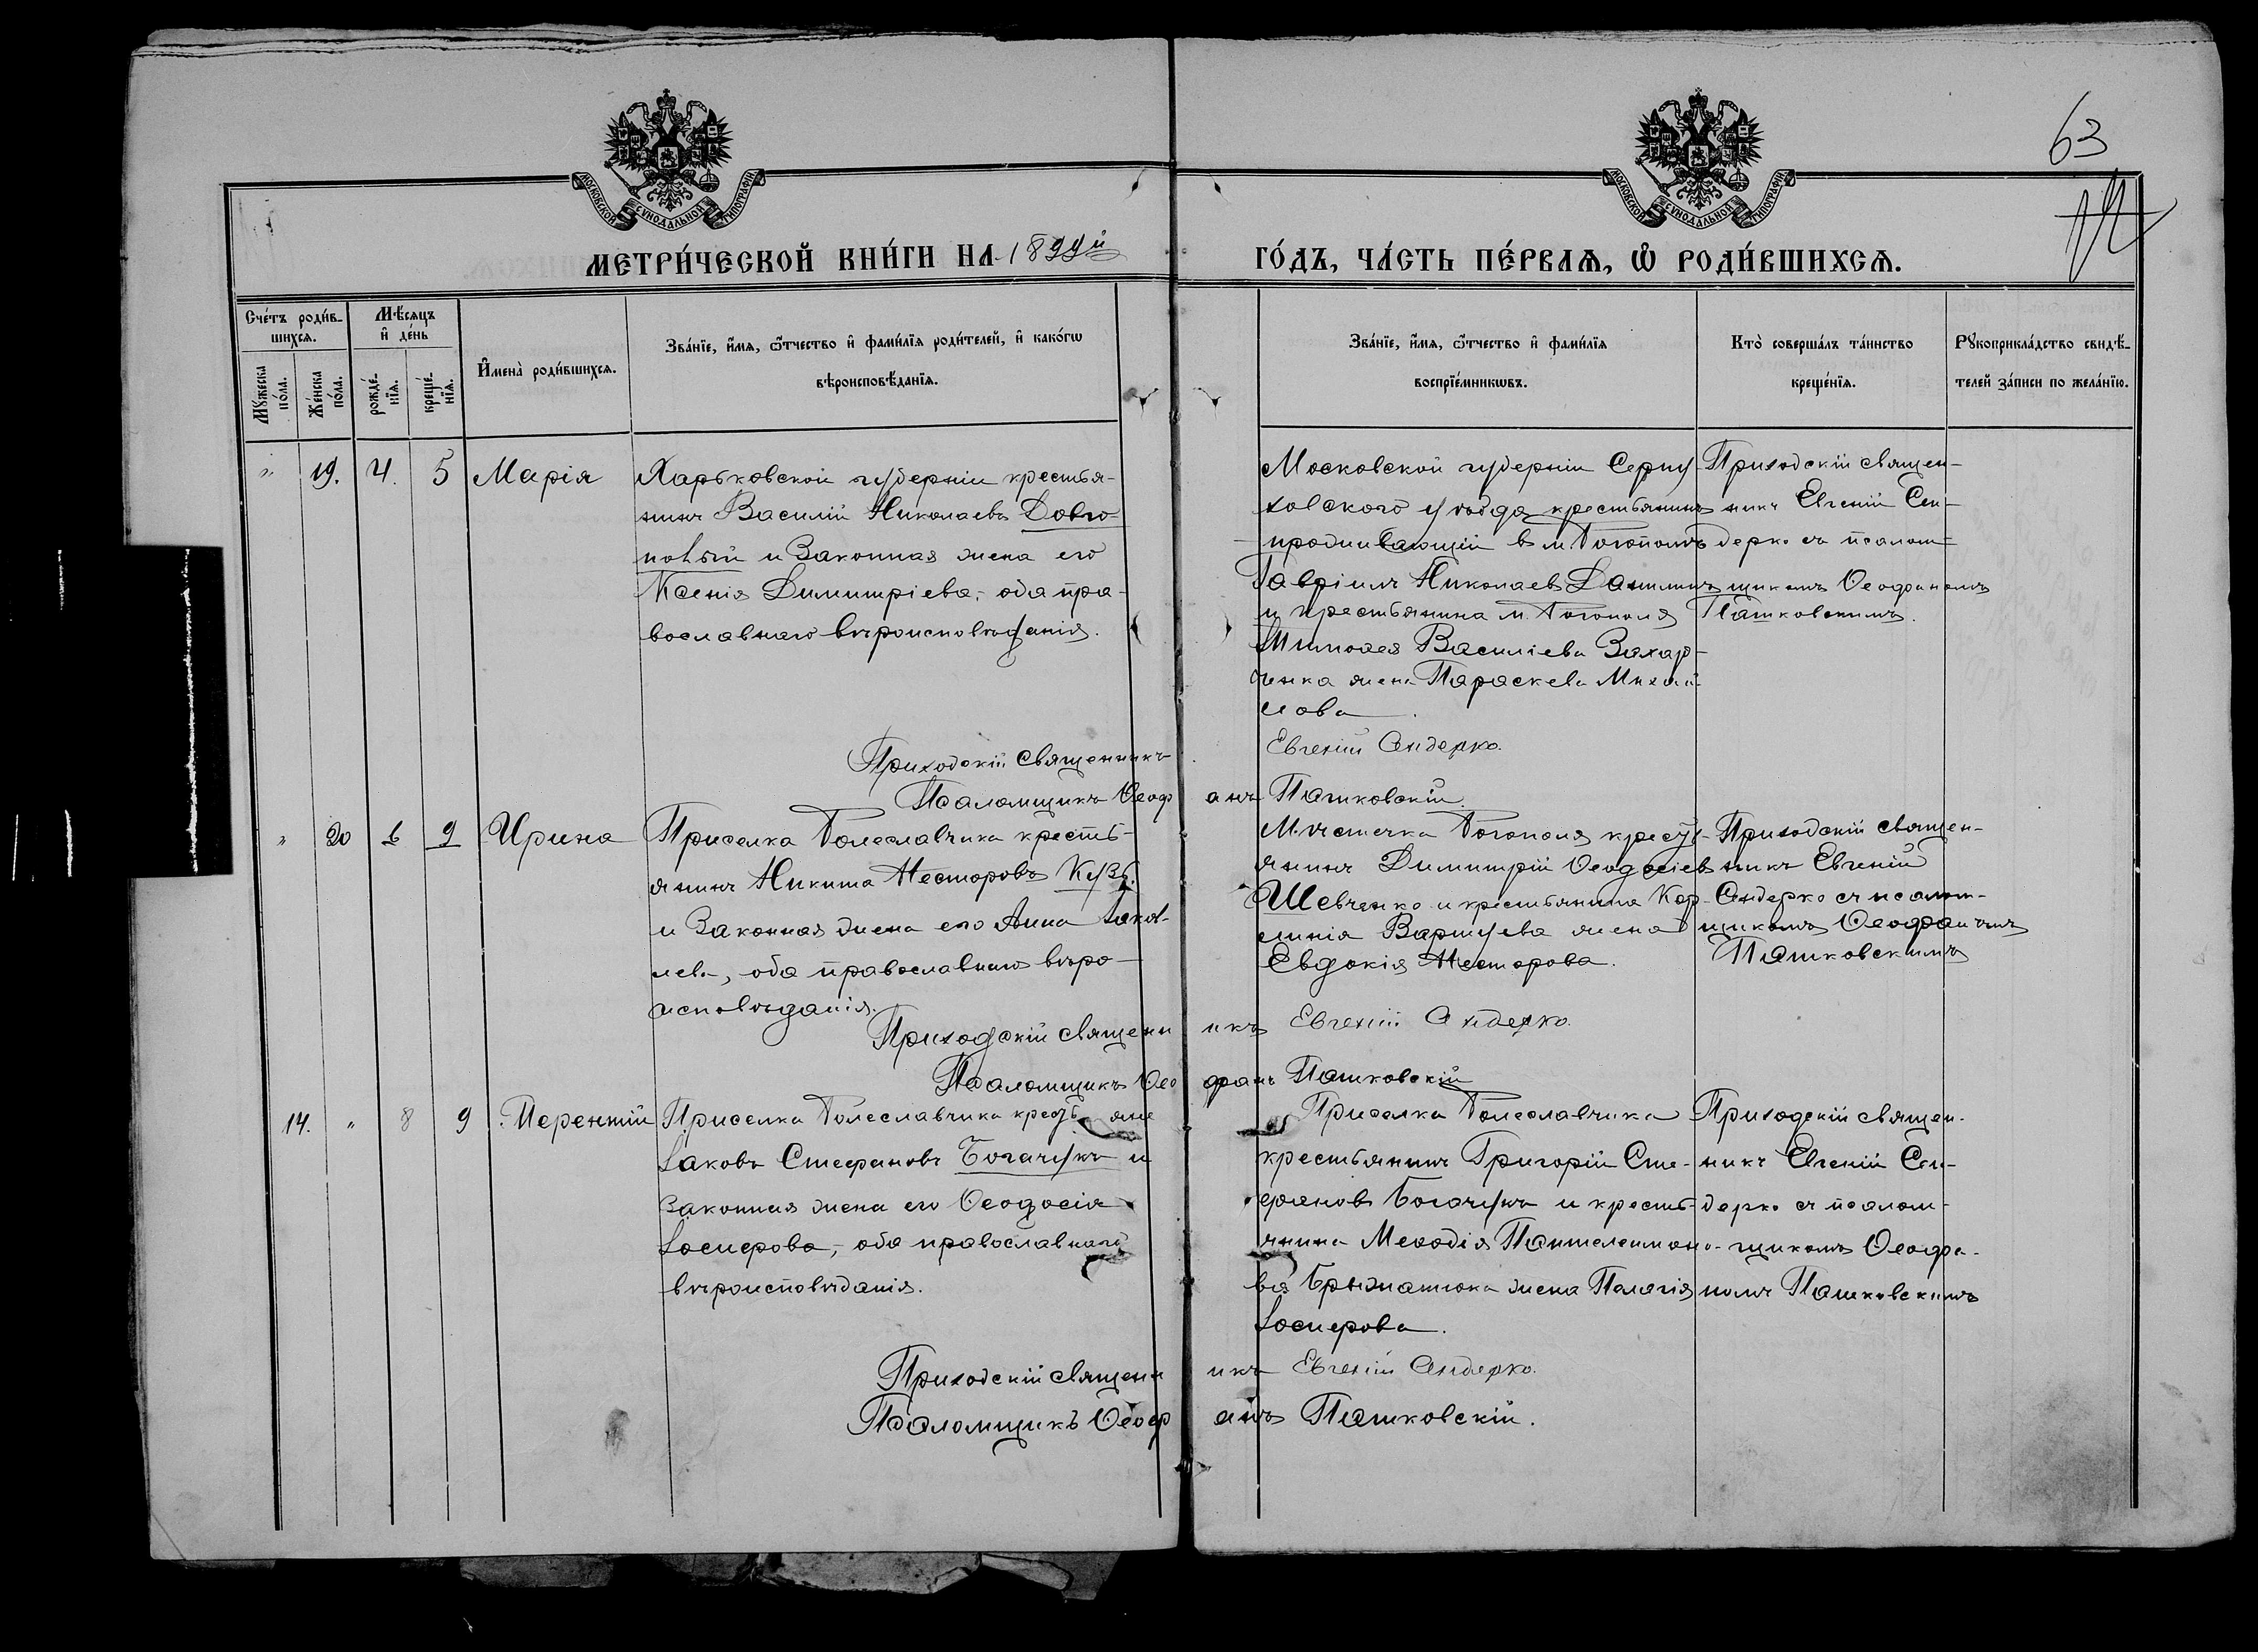 63
МОСКОВСКОЙ СѴНОДАЛЬНОЙ ТИПОГРАФІИ
МОСКОВСКОЙ СѴНОДАЛЬНОЙ ТИПОГРАФІИ
МЕТРИ́ЧЕСКОЙ КНИ́ГИ НА 1899й ГО́ДЪ, ЧА́СТЬ ПЕ́РВАѦ, Ѡ РОДИ́ВШИХСѦ.
Сче́тъ роди́вшихсѧ.
Мꙋ́жеска по́ла.
Же́нска по́ла.
Мѣ́сѧцъ и де́нь
рожде́нїѧ.
креще́нїѧ.
Имена̀ роди́вшихсѧ.
Зва́нїе, и́мѧ, ѻ́тчество и фами́лїѧ роди́телей, и како́гѡ
вѣроисповѣ́данїѧ.
Зва́нїе, и́мѧ, ѻ́тчество и фами́лїѧ
воспрїе́мникѡвъ.
Кто̀ соверша́лъ та́инство
креще́нїѧ.
Рꙋкоприкла́дство свидѣ́-
телей за́писи по жела́нїю.
" 19. 4. 5 Марія
Харьковской губерніи крестья-
нинъ Василій Николаевъ Довго-
полый и законная жена его
Ксенія Димитріева, оба пра-
вославнаго вѣроисповѣданія.
Московской губерніи Серпу-
ховского уѣзда крестьянинъ
проживающій в м. Богополѣ
Гавріилъ Николаев Данилинъ
и крестьянина м. Богополя
Василіева Захар-
ченка жена Параскева Михаи-
лова.
Приходскій священ-
никъ Евгеній Сен-
дерко съ псалом-
щикомъ Ѳеофаномъ
Пашковскимъ.
Приходскій Священникъ Евгеній Сендерко.
Псаломщикъ Ѳеофанъ Пашковскій.
" 20 6 9 Ирина
Приселка Болеславчика кресть-
янинъ Никита Несторовъ
и законная жена его Анна Іаков-
лева, оба православнаго вѣро-
исповѣданія.
Мѣстечка Богополя кресть-
янинъ Димитрій Ѳеодосіев
Шевченко и крестьянина Кор-
нилія жена
Евдокія Несторова.
Приходскій священ-
никъ Евгеній
Сендерко съ псалом-
щикомъ Ѳеофаномъ
Пашковскимъ
Приходскій священникъ Евгеній Сендерко.
Псаломщикъ Ѳеофанъ Пашковскій
14. " 8 9 Терентій
Приселка Болеславчика крестьяне
Іаковъ Стефановъ Богачукъ и
законная жена его Ѳеодосія
Іосифова, оба православнаго
вѣроисповѣданія.
Приселка Болеславчика
крестьянинъ Григорій Сте-
фановъ Богачукъ и кресть-
янина Меѳодія Пантелеимоно-
ва жена Палагія
Іосифова.
Приходскій священ-
никъ Евгеній Сен-
дерко съ псалом-
щикомъ Ѳеофа-
номъ Пашковскимъ
Приходскій священникъ Евгеній Сендерко.
Псаломщикъ Ѳеофанъ Пашковскій.